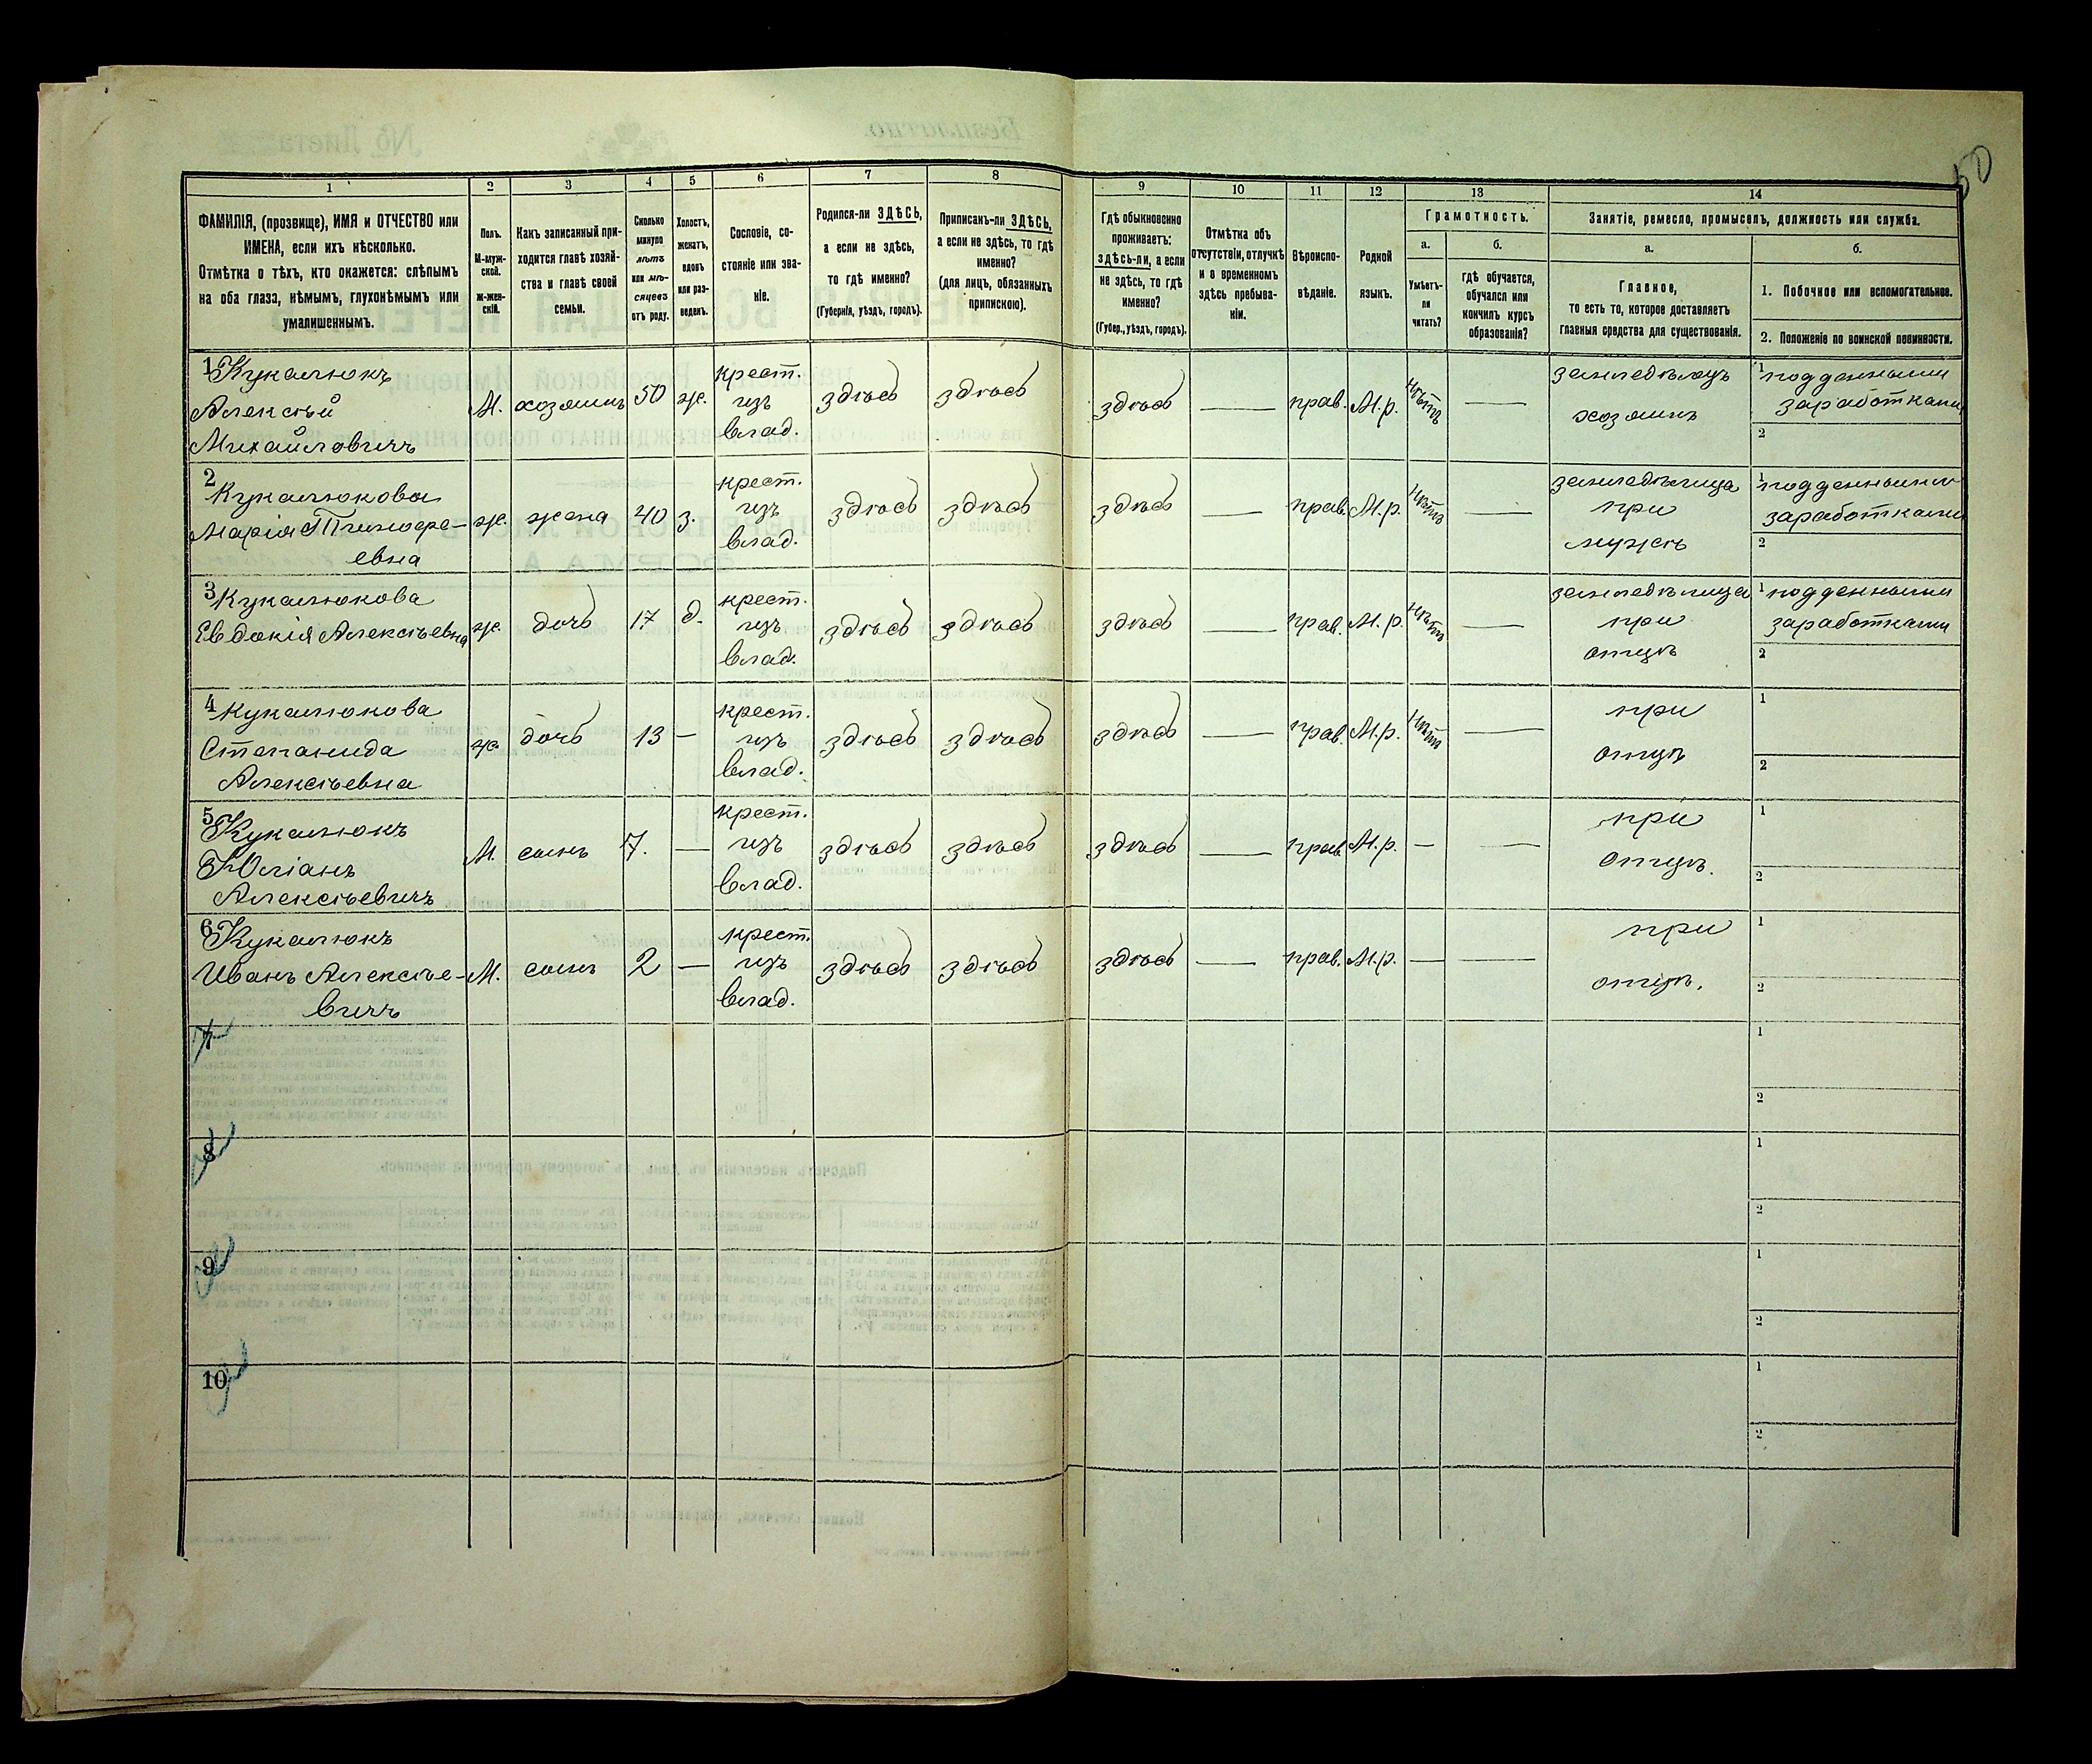 50
1 2 3 4 5 6 7 8 9 10 11 12 13 14
ФАМИЛІЯ, (прозвище), ИМЯ и ОТЧЕСТВО или
ИМЕНА, если ихъ нѣсколько.
Отмѣтка о тѣхъ, кто окажется: слѣпымъ
на оба глаза, нѣмымъ, глухонѣмымъ или
умалишеннымъ.
Полъ.
М-муж-
ской.
ж-жен-
скій.
Какъ записанный при-
ходится главѣ хозяй-
ства и главѣ своей
семьи.
Сколько
минуло
лѣтъ
или мѣ-
сяцевъ
отъ роду.
Холостъ,
женатъ,
вдовъ
или раз-
веденъ.
Сословіе, со-
стояніе или зва-
ніе.
Родился-ли ЗДѢСЬ,
а если не здѣсь,
то гдѣ именно?
(Губернія, уѣздъ, городъ).
Приписанъ-ли ЗДѢСЬ,
а если не здѣсь, то гдѣ
именно?
(для лицъ, обязанныхъ
припискою).
Гдѣ обыкновенно
проживаетъ:
здѣсь-ли, а если
не здѣсь, то гдѣ
именно?
(Губер., уѣздъ, городъ).
Отмѣтка объ
отсутствіи, отлучкѣ
и о временномъ
здѣсь пребыва-
ніи.
Вѣроиспо-
вѣданіе.
Родной
языкъ.
Грамотность.
а.
Умѣетъ-
ли
читать?
б.
гдѣ обучается,
обучался или
кончилъ курсъ
образованія?
Занятіе, ремесло, промыселъ, должность или служба.
а.
Главное,
то есть то, которое доставляетъ
главныя средства для существованія.
б.
1. Побочное или вспомогательное.
2. Положеніе по воинской повинности.
1 Кукалюкъ
Алексѣй
Михайловичъ
М. хозяинъ 50 ж.
крест.
изъ
влад.
здѣсь здѣсь здѣсь — прав. М.р. нѣтъ —
земледѣлецъ
хозяинъ
1 подденными
заработками
2
2 Кукалюкова
Марія Тимофе-
евна
ж. жена 40 з.
крест.
изъ
влад.
здѣсь здѣсь здѣсь — прав. М.р. нѣтъ —
земледѣлица
при
мужѣ
1 подденными
заработками
2
3 Кукалюкова
Евдокія Алексѣевна
ж. дочь 17 д.
крест.
изъ
влад.
здѣсь здѣсь здѣсь — прав. М.р. нѣтъ —
земледѣлица
при
отцѣ
1 подденными
заработками
2
4 Кукалюкова
Степанида
Алексѣевна
ж. дочь 13 —
крест.
изъ
влад.
здѣсь здѣсь здѣсь — прав. М.р. нѣтъ —
при
отцѣ
1
2
5 Кукалюкъ
Юліанъ
Алексѣевичъ
М. сынъ 7. —
крест.
изъ
влад.
здѣсь здѣсь здѣсь — прав. М.р. — —
при
отцѣ.
1
2
6 Кукалюкъ
Иванъ Алексѣе-
вичъ
М. сынъ 2 —
крест.
изъ
влад.
здѣсь здѣсь здѣсь — прав. М.р. — —
при
отцѣ.
1
2
7
1
2
8
1
2
9
1
2
10
1
2